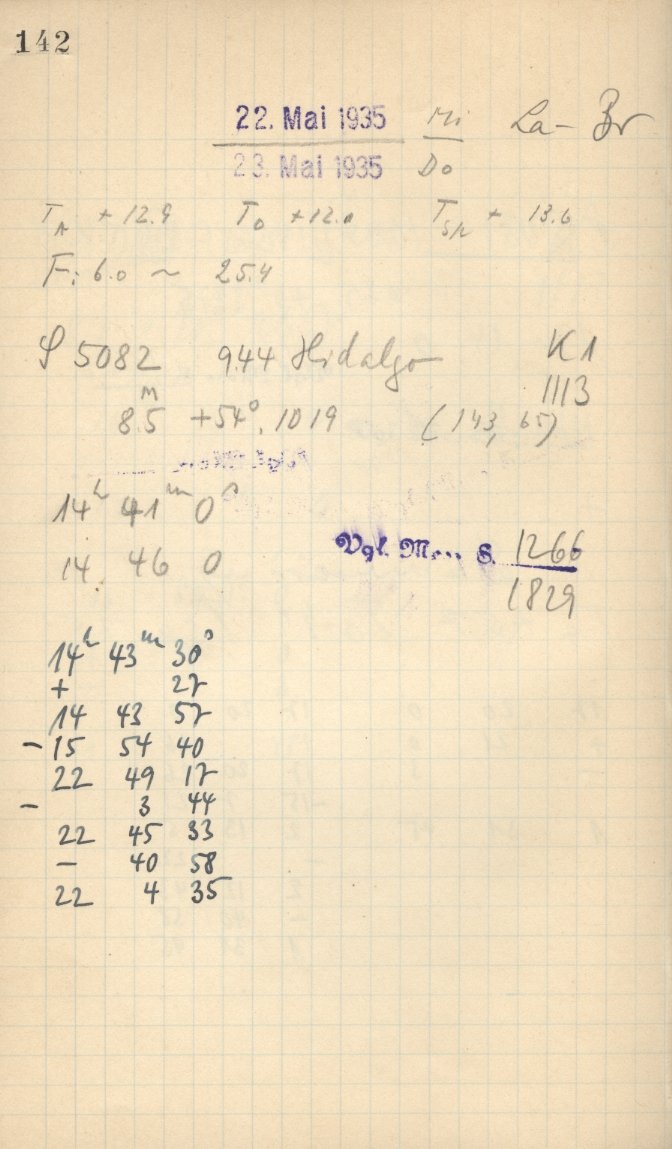 142
22. Mai 1935 Mi La- Br
23. Mai 1935 Do
T_A + 12.9 T_O + 12.0 T_Sk + 13.6
F: 6.0 ~ 25.4
S 5082 944 Hidalgo K1
1113
8.5ᴹ +54°.1019 (143, 65)
14ʰ 41ᵐ 0ˢ
14 46 0
Vgl. S. 1266
1829
14ʰ 43ᵐ 30ˢ
+ 27
14 43 57
- 15 54 40
22 49 17
- 3 44
22 45 33
- 40 58
22 4 35